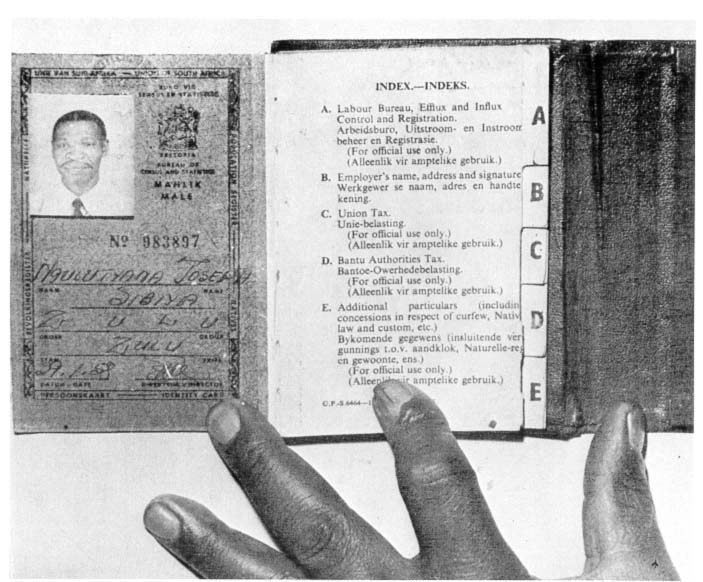 UNIE VAN SUID-AFRIKA — UNION OF SOUTH AFRICA
BURO VIR
SENSUS EN STATISTIEK
PRETORIA
BUREAU OF
CENSUS AND STATISTICS
MANLIK
MALE
Nº 983897
JOSEPH
NAAM NAME
SIBIYA
ZULU
GROUP
ZULU
STAM TRIBE
DATUM - DATE DIREKTEUR - DIRECTOR
PERSOONSKAART — IDENTITY CARD
NATURELLE
BEVOLKINGSREGISTER
POPULATION REGISTER
NATIVE
INDEX.—INDEKS.
A. Labour Bureau, Efflux and Influx
Control and Registration.
Arbeidsburo, Uitstroom- en Instroom
beheer en Registrasie.
(For official use only.)
(Alleenlik vir amptelike gebruik.)
B. Employer's name, address and signature
Werkgewer se naam, adres en handte
kening.
C. Union Tax.
Unie-belasting.
(For official use only.)
(Alleenlik vir amptelike gebruik.)
D. Bantu Authorities Tax.
Bantoe-Owerhedebelasting.
(For official use only.)
(Alleenlik vir amptelike gebruik.)
E. Additional particulars (includin
concessions in respect of curfew, Nativ
law and custom, etc.)
Bykomende gegewens (insluitende ver
gunnings t.o.v. aandklok, Naturelle-re
en gewoonte, ens.)
(For official use only.)
(Alleenlik vir amptelike gebruik.)
G.P.-S.6464—1
A
B
C
D
E